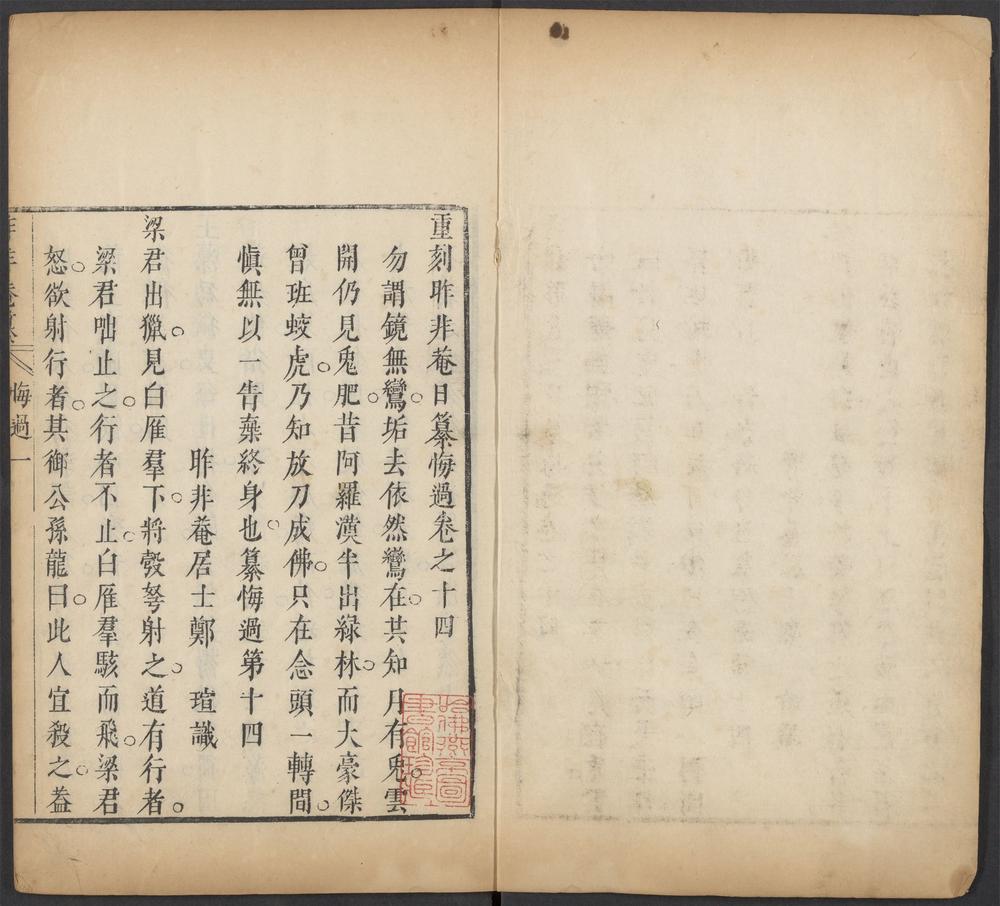 重刻昨非菴日纂悔過卷之十四
勿謂鏡無鸞。垢去依然鸞。在其知月有兒。雲
開仍見兎肥。昔阿羅漢半出綠林。而大豪傑
曾班蛟虎。乃知放刀成佛。只在念頭一轉間。
愼無以一眚棄終身也。纂悔過第十四
昨非菴居士鄭瑄識
梁君出獵。見白雁羣下。將彀弩射之。道有行者。
梁君咄止之。行者不止。白雁羣駭而飛。梁君
怒。欲射行者。其御公孫龍曰。此人宜殺之。葢
昨非菴纂 悔過 一
哈佛燕京圖書館珍藏